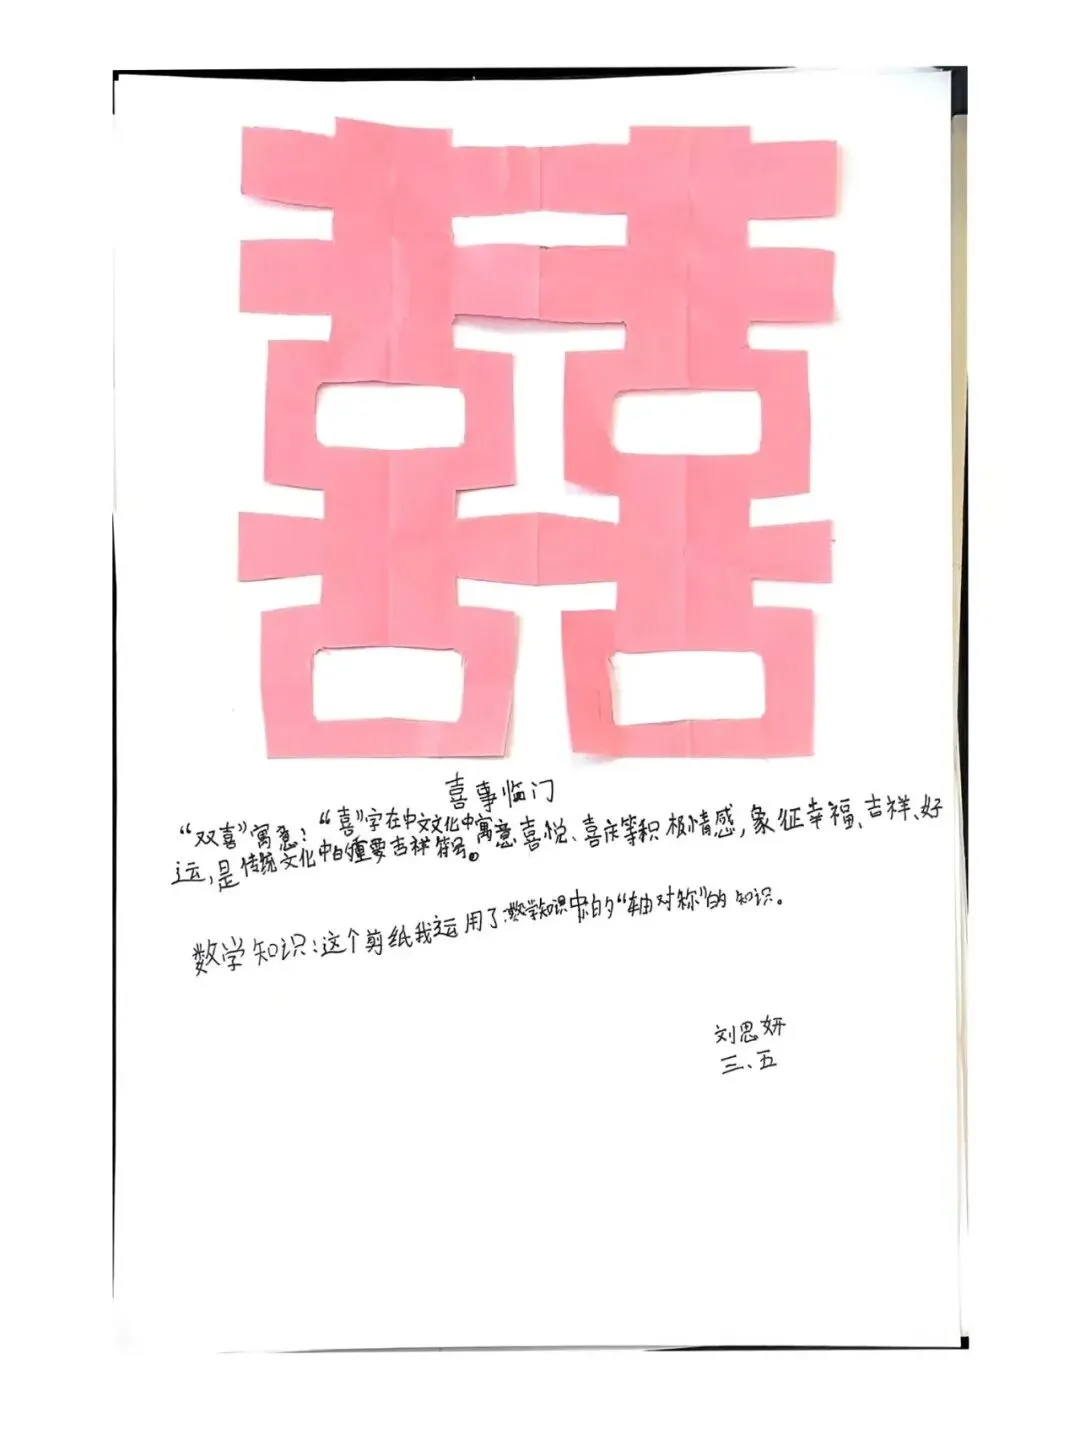 囍
喜事临门
“双喜”寓意：“喜”字在中文文化中寓意喜悦、喜庆等积极情感，象征幸福、吉祥、好
运，是传统文化中的重要吉祥符号。
数学知识：这个剪纸我运用了数学知识中的“轴对称”的知识。
刘思妍
三、五